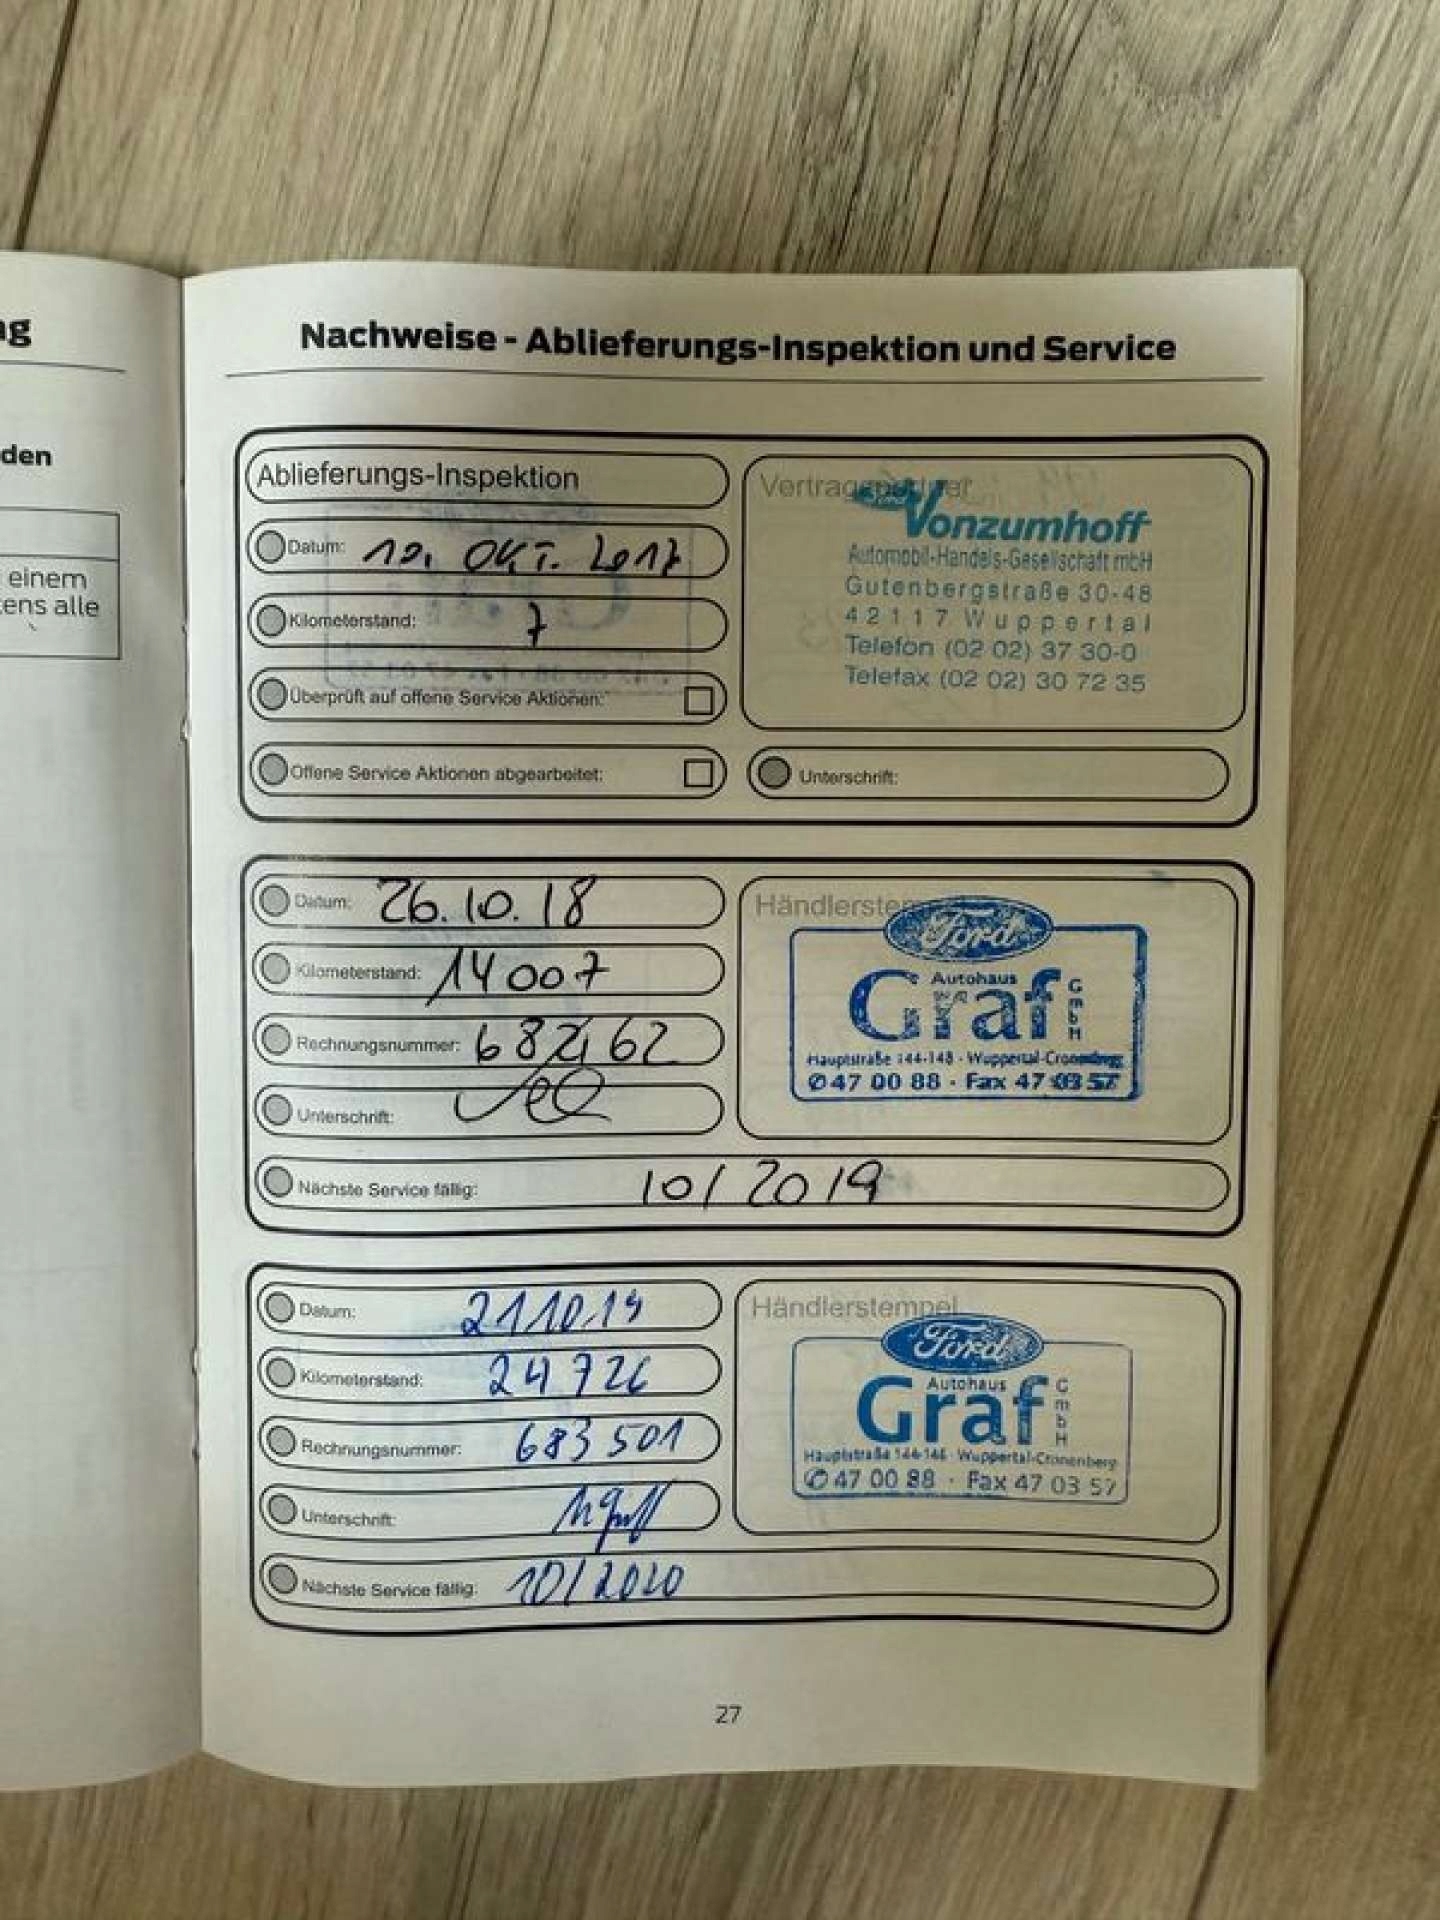 ng
den
einem
tens alle
Nachweise - Ablieferungs-Inspektion und Service
Ablieferungs-Inspektion
Datum: 10. OKT. 2017
Kilometerstand: 7
Überprüft auf offene Service Aktionen:
Offene Service Aktionen abgearbeitet:
Vertragspartner
Ford Vonzumhoff
Automobil-Handels-Gesellschaft mbH
Gutenbergstraße 30-48
42117 Wuppertal
Telefon (02 02) 37 30-0
Telefax (02 02) 30 72 35
Unterschrift:
Datum: 26.10.18
Kilometerstand: 14007
Rechnungsnummer:
Unterschrift:
Händlerstempel
Ford
Autohaus
Graf GmbH
Hauptstraße 144-148 · Wuppertal-Cronenberg
47 00 88 · Fax 47 03 57
Nächste Service fällig: 10/2019
Datum: 21.10.19
Kilometerstand: 24726
Rechnungsnummer: 683501
Unterschrift:
Händlerstempel
Ford
Autohaus
Graf GmbH
Hauptstraße 144-148 · Wuppertal-Cronenberg
47 00 88 · Fax 47 03 57
Nächste Service fällig: 10/2020
27